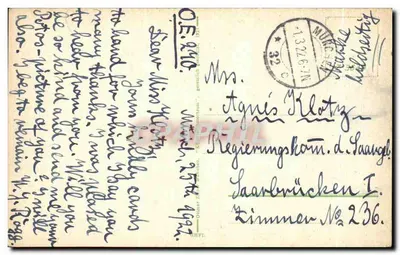 O.E. 240.
Munich, 25th II. 1922.
Dear Miss Klotz
Yours kindly cards
to hand for which I pay you
many thanks. I was pleased
to hear from you. Will you
be so kind and send me your
Foto-picture of you & I will
also. I beg to remain
MÜNCHEN
-1.3.22.6-7N
* 32 c
Mrs.
Agnès Klotz
Regierungskom. d. Saargeb.
Saarbrücken I.
Zimmer No 236.